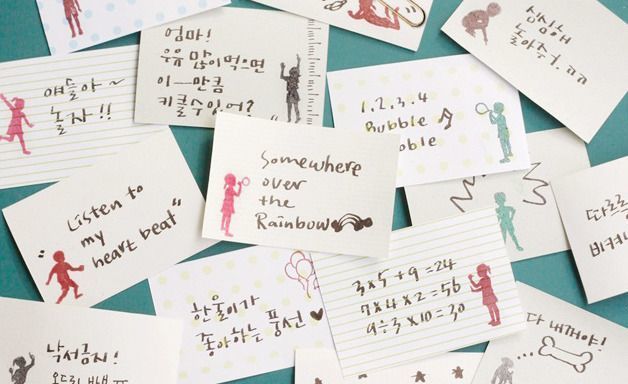 엄마!
우유 많이먹으면
이―만큼
키클수있어?
심심해
얘들아~
놀자!!
1.2.3.4
Bubble
Somewhere
over
the
Rainbow
"Listen to
my
heart beat"
따르르
비켜
한울이가
좋아하는 풍선
3×5+9=24
7×4×2=56
9÷3×10=30
낙서금지!
다 내꺼야!